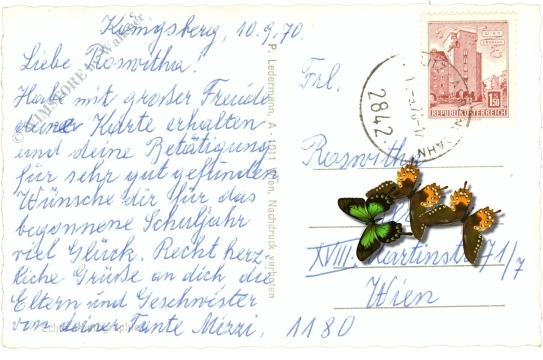 Königsberg, 10.9.70.
Liebe Roswitha!
Habe mit großer Freude
deine Karte erhalten
und deine Betätigung
für sehr gut gefunden
Wünsche dir für das
begonnene Schuljahr
viel Glück. Recht herz-
liche Grüße an dich die
Eltern und Geschwister
von deiner Tante Mizzi.
P. Ledermann, A-1011 Wien, Nachdruck verboten
2842
1.50
REPUBLIK ÖSTERREICH
Frl.
Roswitha
XVIII. Martinstr. 71/7
Wien
1180